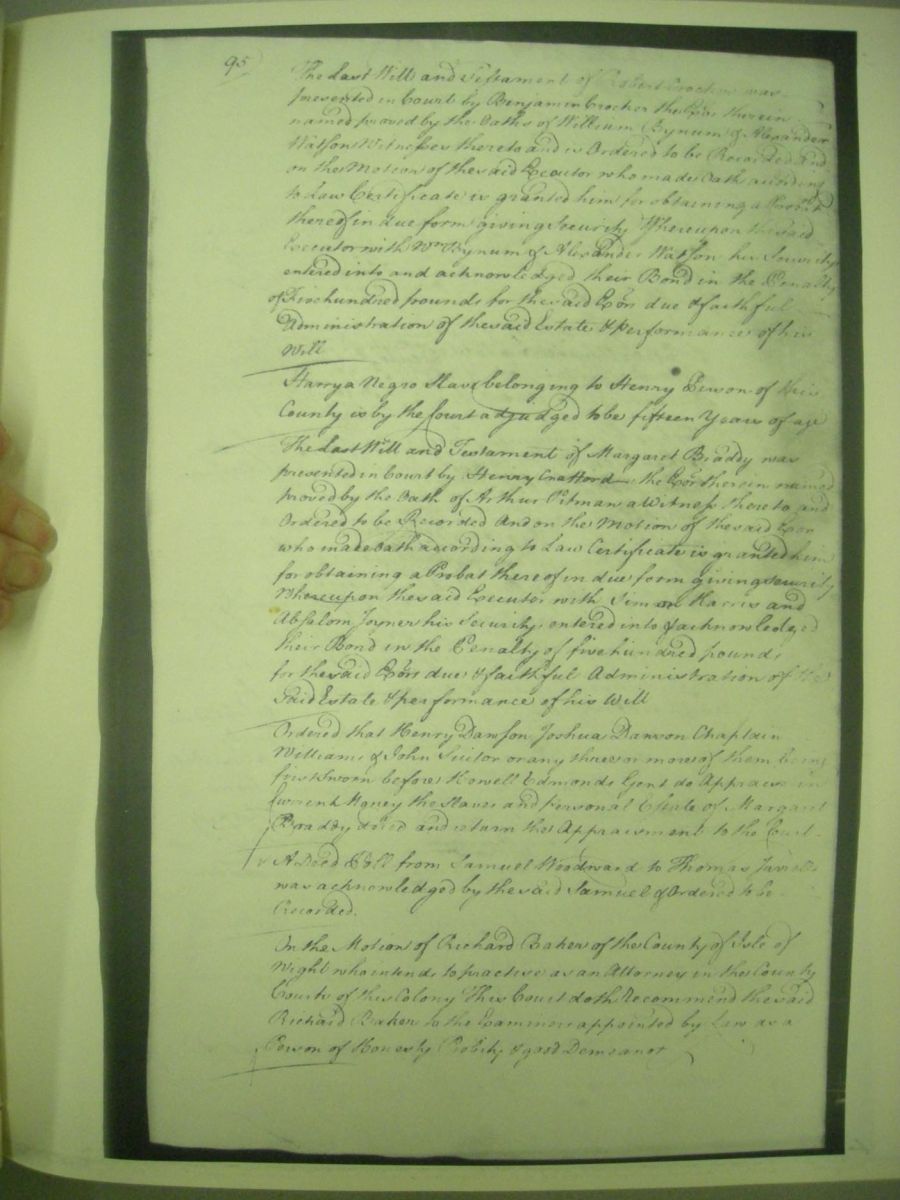 95
The Last Will and Testament of Robert Crocker was
presented in Court by Benjamin Crocker the Exor therein
named proved by the Oaths of William Bynum & Alexander
Watson Witnesses thereto and is Ordered to be Recorded and
on the Motion of the said Executor who made Oath according
to Law Certificate is granted him for obtaining a Probat
thereof in due form giving Security Whereupon the said
Executor with Wm Bynum & Alexander Watson his Security
entered into and acknowledged their Bond in the Penalty
of Five hundred pounds for the said Exors due & faithful
Administration of the said Estate & performance of his
Will
Harry a Negro Slave belonging to Henry of this
County is by the Court adjudged to be fifteen Years of age
The Last Will and Testament of Margaret Braddy was
presented in Court by Henry Crafford the Exor therein named
proved by the Oath of Arthur Pitman a Witness thereto and
Ordered to be Recorded And on the Motion of the said Exor
who made Oath according to Law Certificate is granted him
for obtaining a Probat thereof in due form giving Security
Whereupon the said Executor with Simon Harris and
Absalom Joyner his Security entered into & acknowledged
their Bond in the Penalty of five hundred pounds
for the said Exors due & faithful Administration of the
Said Estate & performance of his Will
Ordered that Henry Dawson Joshua Dawson Chaplain
Williams & John or any three or more of them being
first Sworn before Howell Edmonds Gent do Appraise in
Current Money the Slaves and personal Estate of Margaret
Braddy decd and return the Appraisment to the Court
A Deed Poll from Samuel Woodward to Thomas
was acknowledged by the said Samuel & Ordered to be
Recorded.
On the Motion of Richard Baker of the County of Isle of
Wight who intends to practise as an Attorney in the County
Courts of this Colony This Court doth Recommend the said
Richard Baker to the Examiners appointed by Law as a
Person of Honesty Probity & good Demeanor